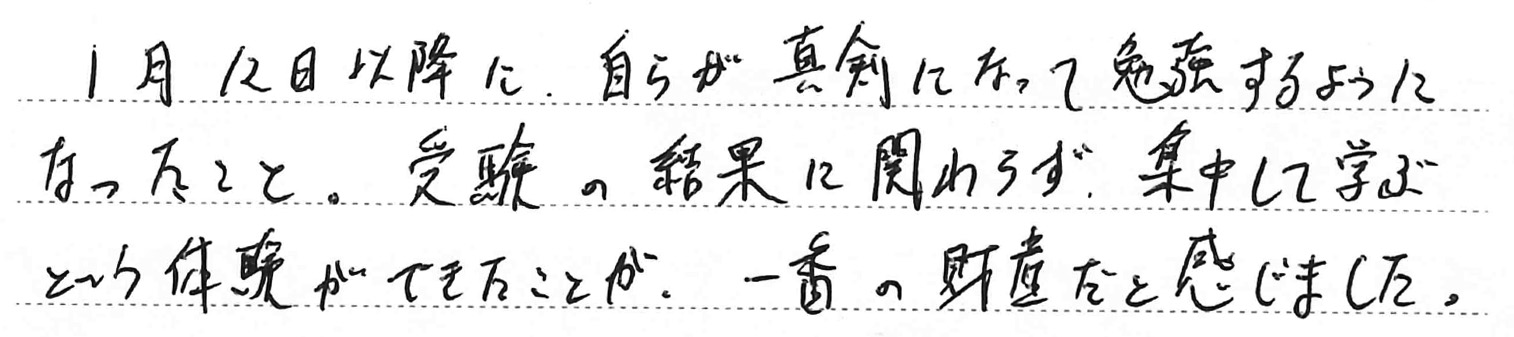 1月12日以降に、自らが真剣になって勉強するように
なったこと。受験の結果に関わらず、集中して学ぶ
という体験ができたことが、一番の財産だと感じました。